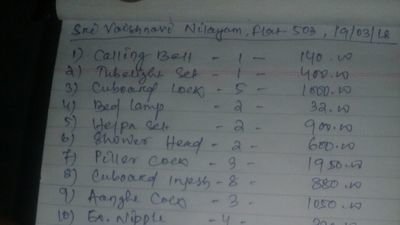 Sri Vaishnavi Nilayam, Flat-503, 19/03/18
1) Calling Bell - 1 - 140.00
2) Tubelight Set - 1 - 400.00
3) Cuboard Lock - 5 - 1000.00
4) Bed lamp - 2 - 32.00
5) Set - 2 - 900.00
6) Shower Head - 2 - 600.00
7) Piller Cock - 3 - 1950.00
8) Cuboard - 8 - 880.00
9) Cock - 3 - 1050.00
10) Ex. Nipple - 4 -